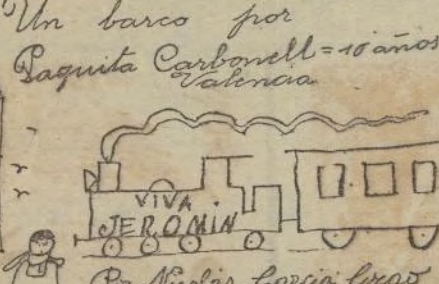 Un barco por
Paquita Carbonell = 10 años
Valencia
VIVA
JEROMIN
Por Nicolás García